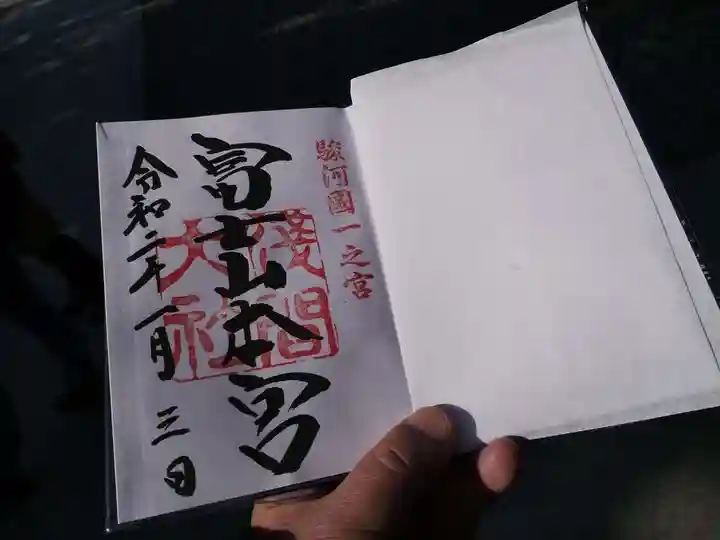 駿河國一之宮
富士山本宮
淺間
大社
令和二年一月三日